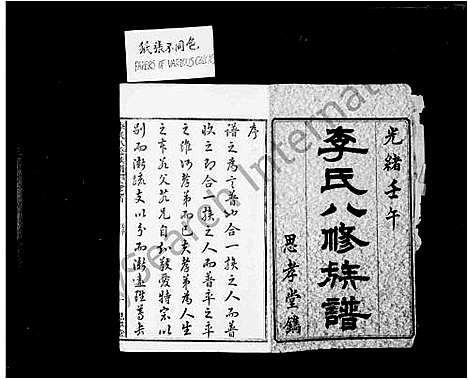 紙張不同色.
PAPERS OF VARIOUS COLORS
光緒壬午
李氏八修族譜
思孝堂鐫
序
譜之為言普也合一族之人而普
收之即合一族之人而普平之平
之維何孝弟而已夫孝弟為人生
之本茲父茲兄自知敬愛特宗以
別而漸疏支以分而漸遠雖尊長
Search International